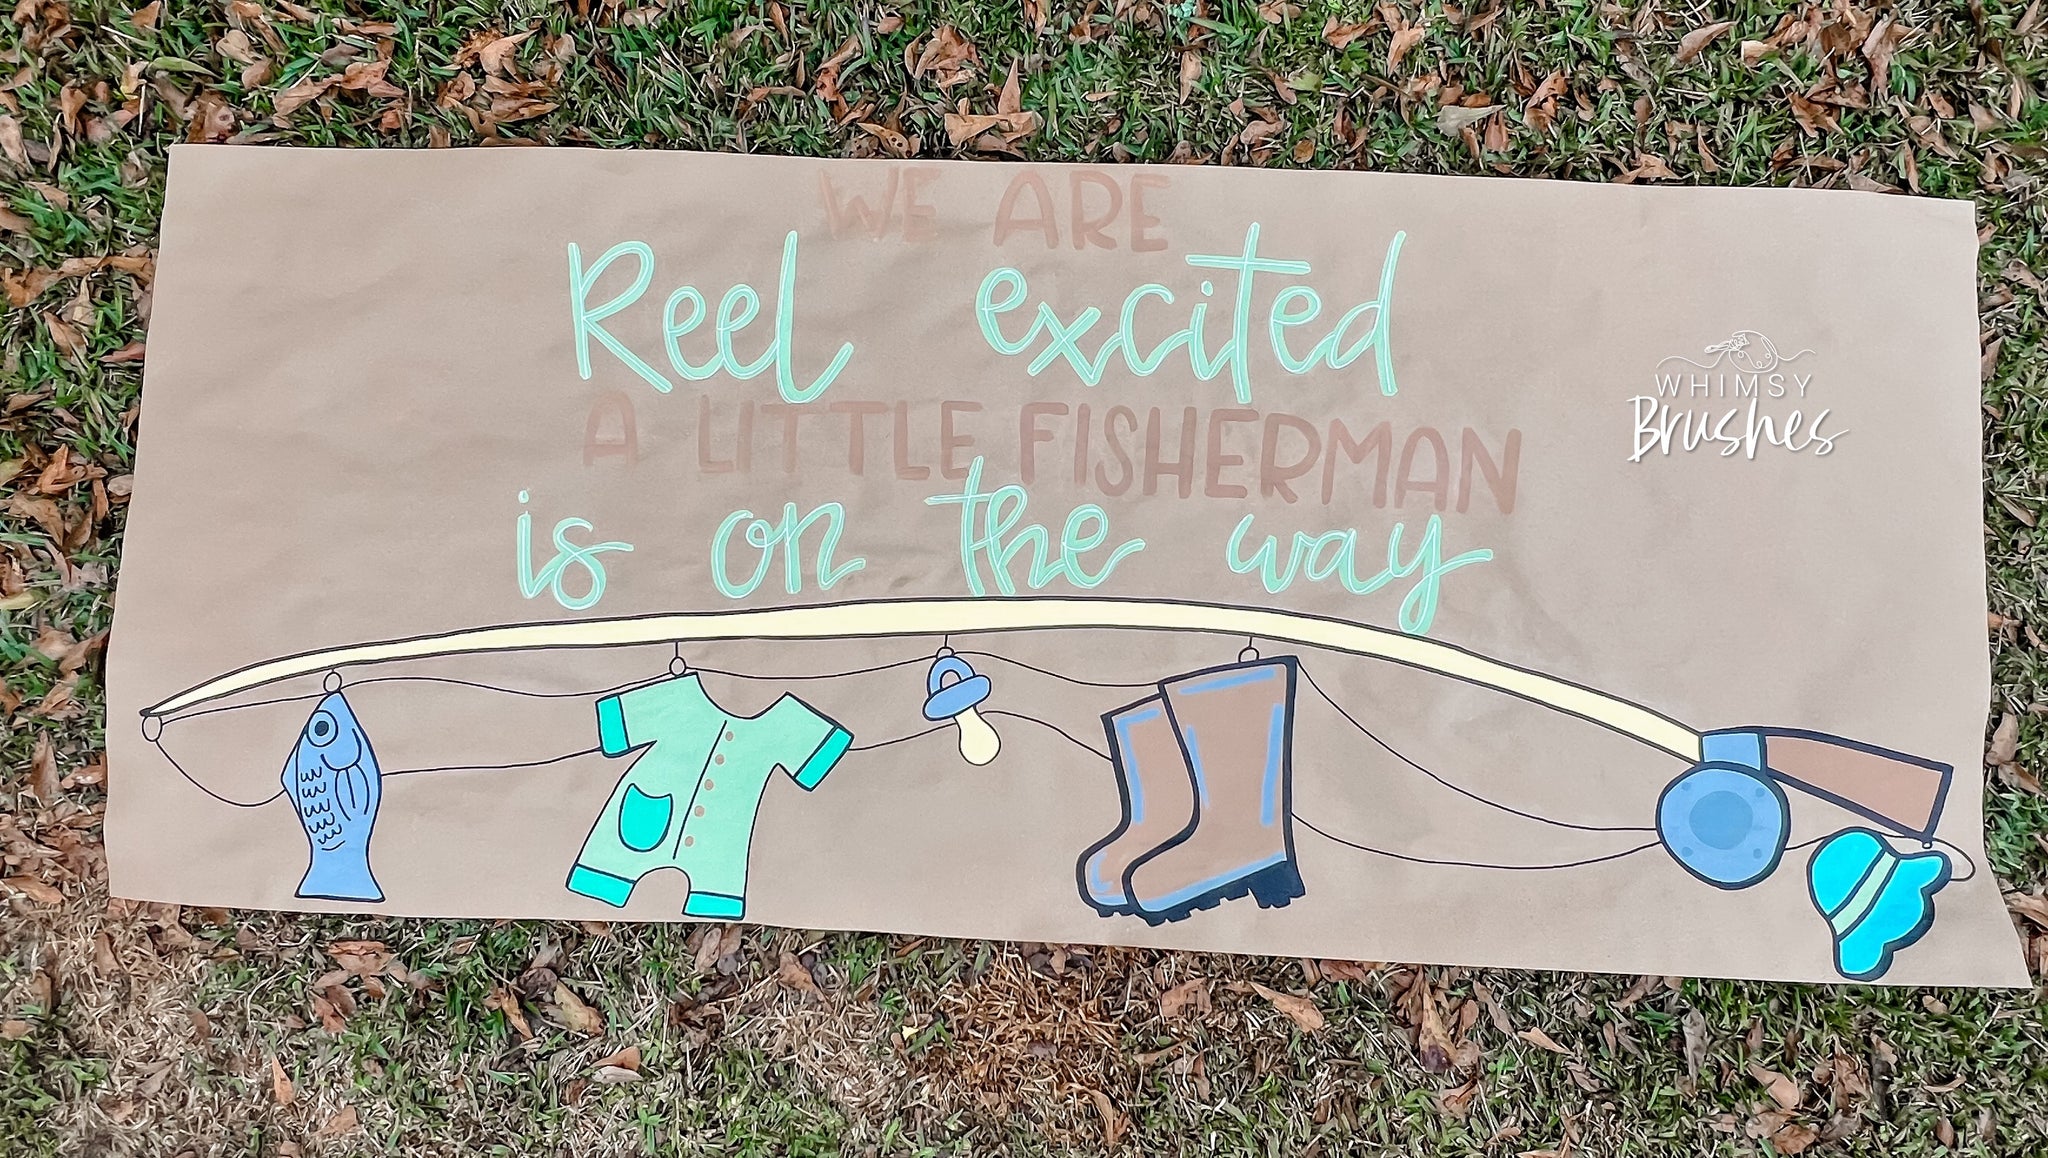 WE ARE
Reel excited
A LITTLE FISHERMAN
is on the way
WHIMSY
Brushes